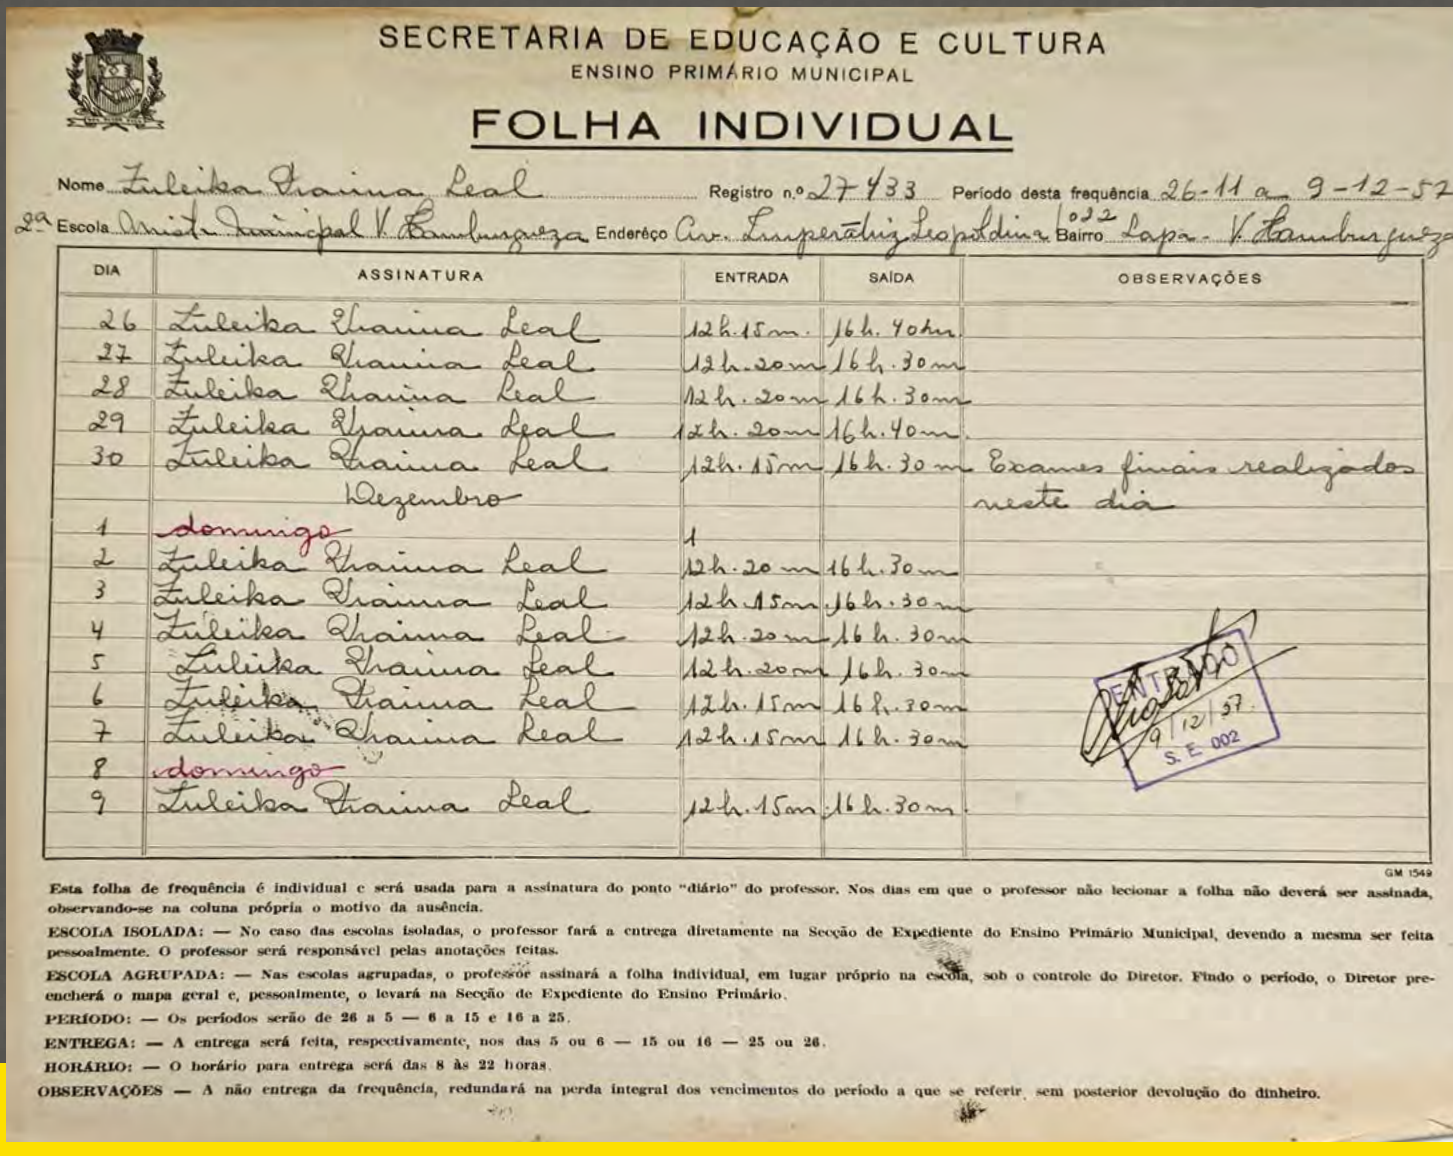 SECRETARIA DE EDUCAÇÃO E CULTURA
ENSINO PRIMÁRIO MUNICIPAL
FOLHA INDIVIDUAL
Nome Zuleika Leal Registro n.º 27433 Período desta frequência 26-11 a 9-12-57
2ª Escola Mista Municipal V. Hamburgueza Enderêço Av. Imperatriz Leopoldina 1022 Bairro Lapa - V. Hamburgueza
DIA ASSINATURA ENTRADA SAÍDA OBSERVAÇÕES
26 Zuleika Leal 12h.15m. 16h.40m.
27 Zuleika Leal 12h.20m 16h.30m
28 Zuleika Leal 12h.20m 16h.30m
29 Zuleika Leal 12h.20m 16h.40m.
30 Zuleika Leal 12h.15m 16h.30m Exames finais realizados
Dezembro neste dia
1 domingo 1
2 Zuleika Leal 12h.20m 16h.30m
3 Zuleika Leal 12h.15m 16h.30m
4 Zuleika Leal 12h.20m 16h.30m
5 Zuleika Leal 12h.20m 16h.30m
6 Zuleika Leal 12h.15m 16h.30m
7 Zuleika Leal 12h.15m 16h.30m
8 domingo
9 Zuleika Leal 12h.15m 16h.30m.
ENTRADO
9/12/57.
S. E. 002
GM 1549
Esta folha de frequência é individual e será usada para a assinatura do ponto "diário" do professor. Nos dias em que o professor não lecionar a folha não deverá ser assinada,
observando-se na coluna própria o motivo da ausência.
ESCOLA ISOLADA: — No caso das escolas isoladas, o professor fará a entrega diretamente na Secção de Expediente do Ensino Primário Municipal, devendo a mesma ser feita
pessoalmente. O professor será responsável pelas anotações feitas.
ESCOLA AGRUPADA: — Nas escolas agrupadas, o professor assinará a folha individual, em lugar próprio na escola, sob o controle do Diretor. Findo o período, o Diretor pre-
encherá o mapa geral e, pessoalmente, o levará na Secção de Expediente do Ensino Primário.
PERÍODO: — Os períodos serão de 26 a 5 — 6 a 15 e 16 a 25.
ENTREGA: — A entrega será feita, respectivamente, nos das 5 ou 6 — 15 ou 16 — 25 ou 26.
HORÁRIO: — O horário para entrega será das 8 às 22 horas.
OBSERVAÇÕES — A não entrega da frequência, redundará na perda integral dos vencimentos do período a que se referir sem posterior devolução do dinheiro.